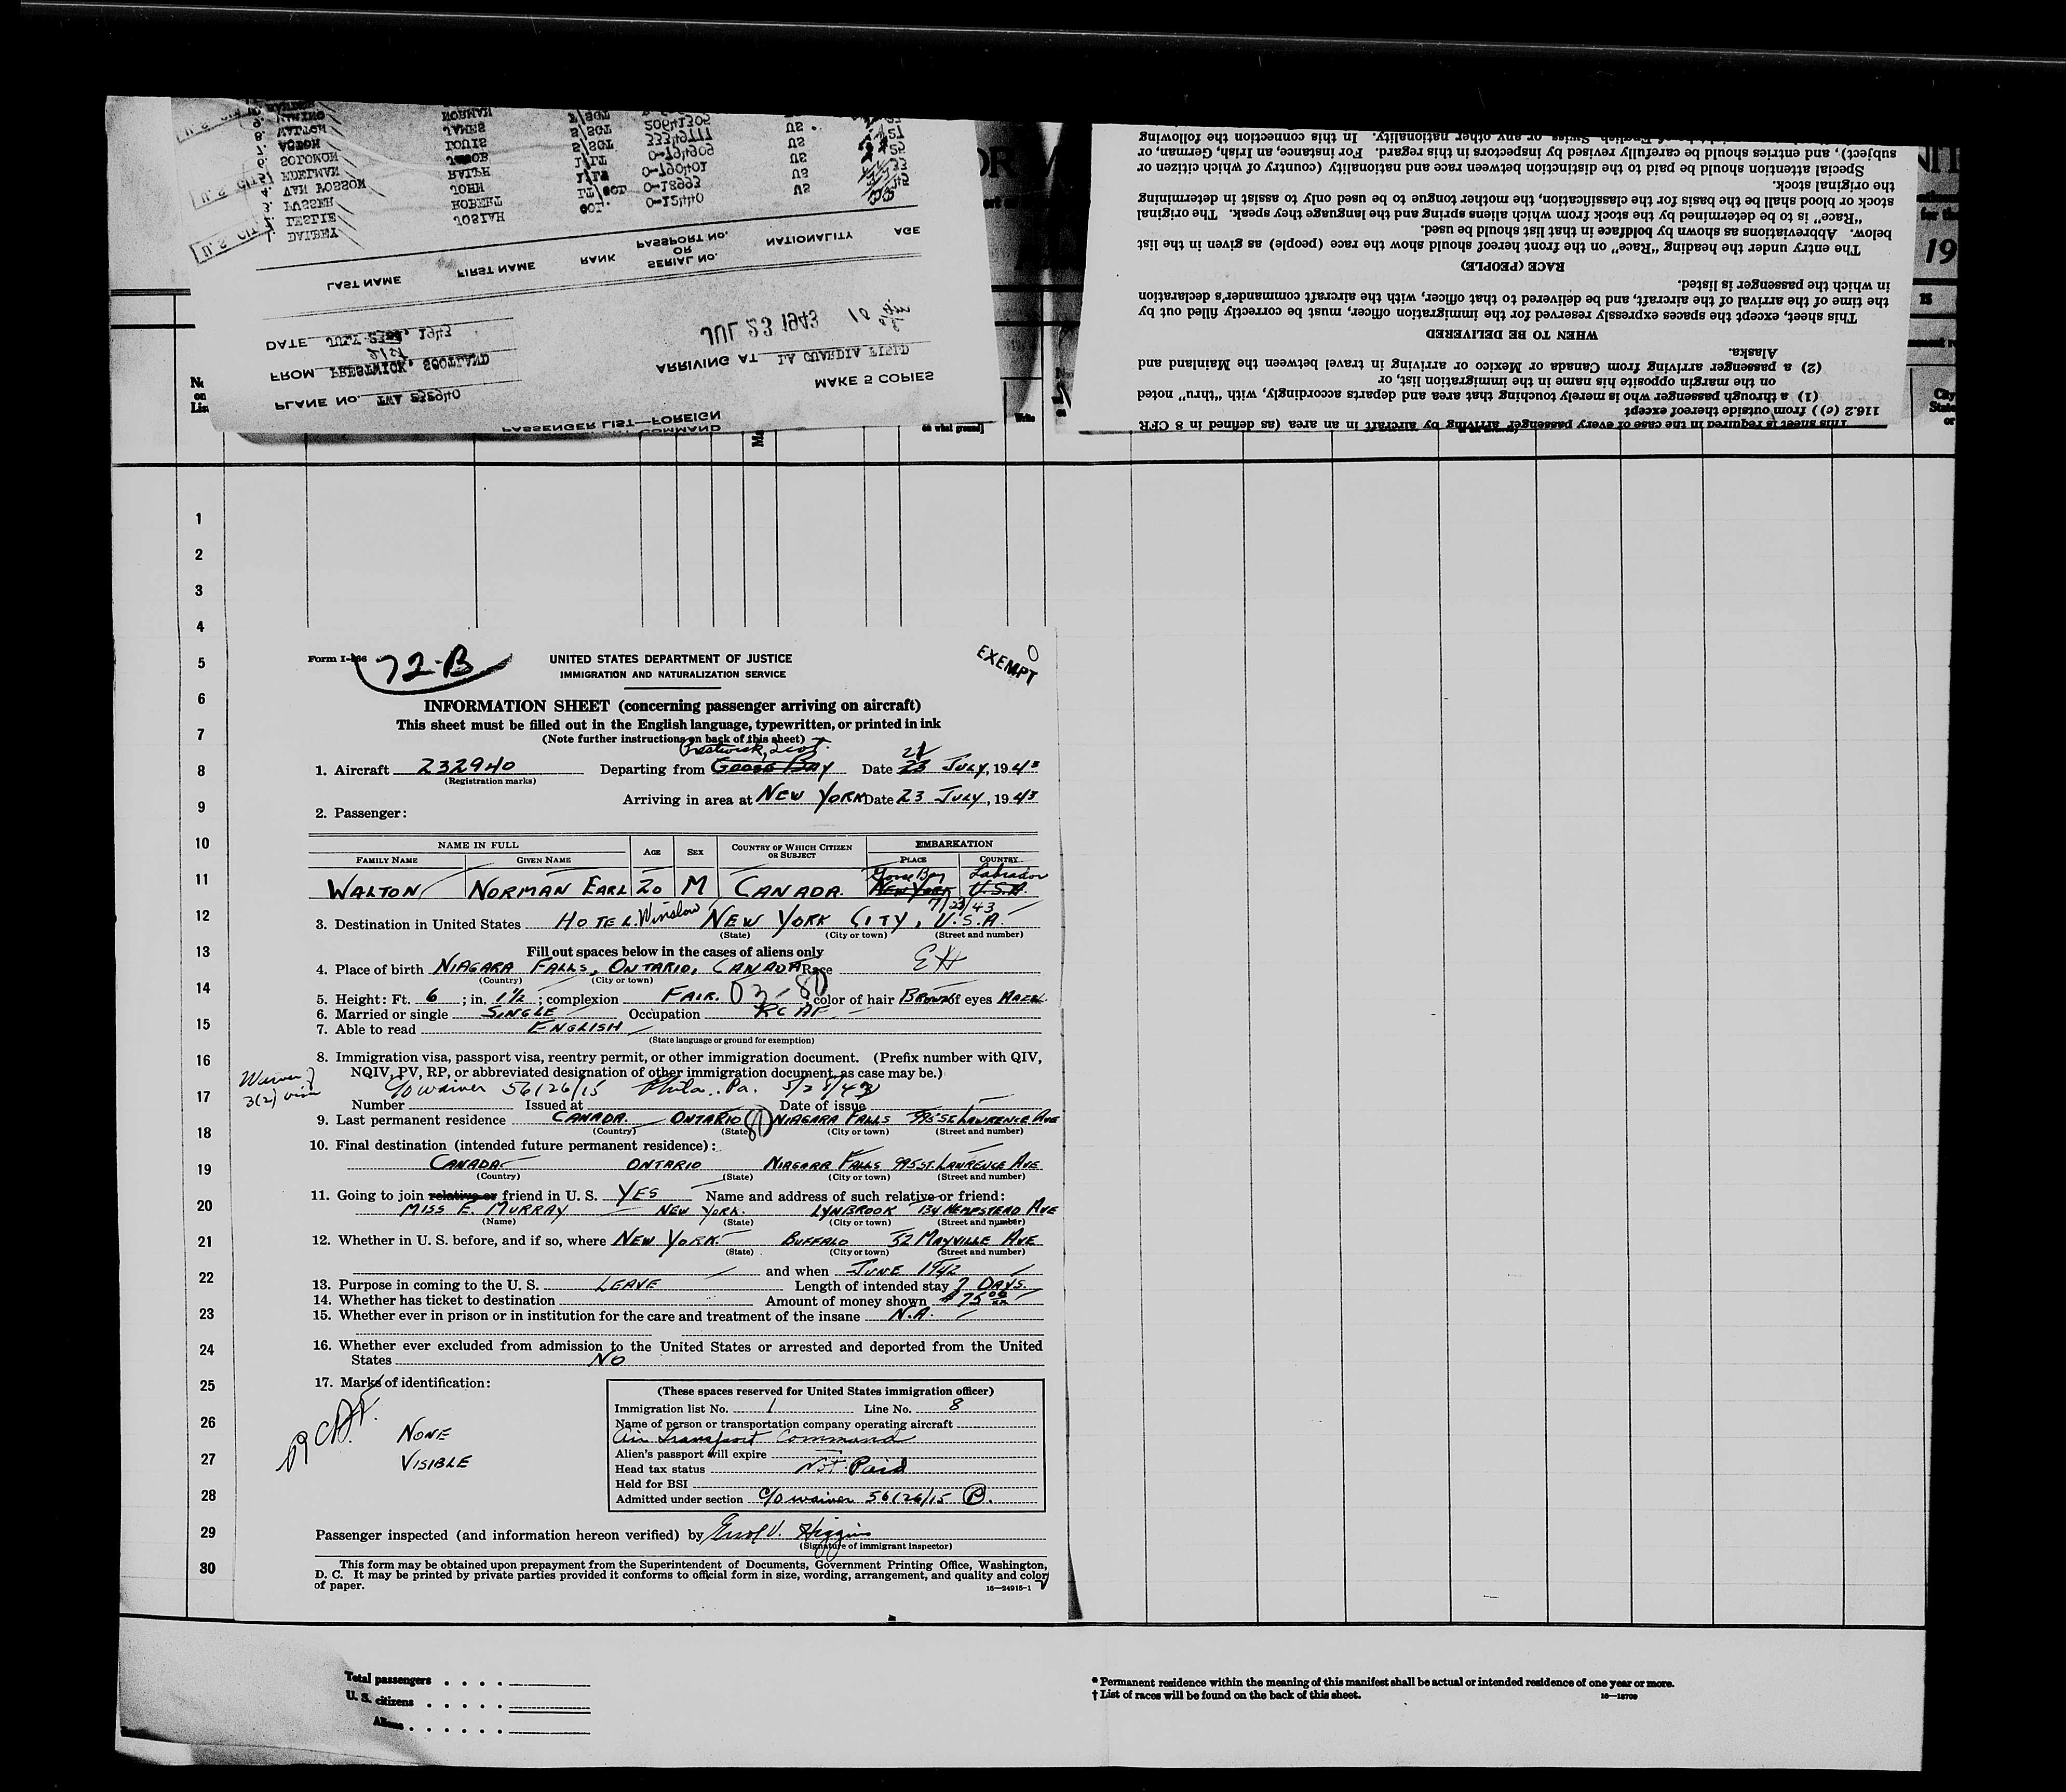 PASSENGER LIST—FOREIGN
MAKE 5 COPIES
PLANE NO. TWA 232940
ARRIVING AT LA GUARDIA FIELD
FROM PRESTWICK, SCOTLAND
JUL 23 1943
DATE JULY 1943
LAST NAME FIRST NAME RANK SERIAL NO. OR PASSPORT NO. NATIONALITY AGE
1. DALBEY JOSIAH COL. 0-15440 US
2. LESLIE ROBERT LT/COL 0-18993 US
JOHN
4. VAN ROSSOM RALPH 0-790401 US
5. EDELMAN
6. SOLOMON LOUIS S/SGT 33349777 US
JAMES S/SGT 20641305
8. WALTON NORMAN F/SGT
This sheet is required in the case of every passenger arriving by aircraft in an area (as defined in 8 CFR
116.2 (c)) from outside thereof except
(1) a through passenger who is merely touching that area and departs accordingly, with "thru" noted
on the margin opposite his name in the immigration list, or
(2) a passenger arriving from Canada or Mexico or arriving in travel between the Mainland and
Alaska.
WHEN TO BE DELIVERED
This sheet, except the spaces expressly reserved for the immigration officer, must be correctly filled out by
the time of the arrival of the aircraft, and be delivered to that officer, with the aircraft commander's declaration
in which the passenger is listed.
RACE (PEOPLE)
The entry under the heading "Race" on the front hereof should show the race (people) as given in the list
below. Abbreviations as shown by boldface in that list should be used.
"Race" is to be determined by the stock from which aliens spring and the language they speak. The original
stock or blood shall be the basis for the classification, the mother tongue to be used only to assist in determining
the original stock.
Special attention should be paid to the distinction between race and nationality (country of which citizen or
subject), and entries should be carefully revised by inspectors in this regard. For instance, an Irish, German, or
English, Swiss or any other nationality. In this connection the following
19
1
2
3
4
5
6
7
8
9
10
11
12
13
14
15
16
17
18
19
20
21
22
23
24
25
26
27
28
29
30
72-B
UNITED STATES DEPARTMENT OF JUSTICE
IMMIGRATION AND NATURALIZATION SERVICE
EXEMPT
INFORMATION SHEET (concerning passenger arriving on aircraft)
This sheet must be filled out in the English language, typewritten, or printed in ink
(Note further instructions on back of this sheet)
Prestwick, Scot.
1. Aircraft 232940 Departing from Goose Bay Date 21 23 July, 1943
(Registration marks)
Arriving in area at NEW YORK Date 23 JULY, 1943
2. Passenger:
NAME IN FULL AGE SEX COUNTRY OF WHICH CITIZEN OR SUBJECT EMBARKATION
FAMILY NAME GIVEN NAME PLACE COUNTRY
Goose Bay Labrador
WALTON NORMAN EARL 20 M CANADA. NEW YORK U.S.A.
7/23/43
3. Destination in United States HOTEL Winslow NEW YORK CITY, U.S.A.
(State) (City or town) (Street and number)
Fill out spaces below in the cases of aliens only
4. Place of birth NIAGARA FALLS, ONTARIO, CANADA Race
(Country) (City or town)
5. Height: Ft. 6; in. 1½; complexion FAIR. 03-80; color of hair BROWN of eyes HAZEL
6. Married or single SINGLE Occupation RCAF
7. Able to read ENGLISH
(State language or ground for exemption)
8. Immigration visa, passport visa, reentry permit, or other immigration document. (Prefix number with QIV,
NQIV, PV, RP, or abbreviated designation of other immigration document, as case may be.)
Waiver of
3(2) visa
C/O waiver 56126/15 Phila., Pa. 5/28/43
Number Issued at Date of issue
9. Last permanent residence CANADA. ONTARIO NIAGARA FALLS 995 ST. LAWRENCE AVE
(Country) (State) (City or town) (Street and number)
10. Final destination (intended future permanent residence):
CANADA ONTARIO NIAGARA FALLS 995 ST. LAWRENCE AVE
(Country) (State) (City or town) (Street and number)
11. Going to join relative or friend in U. S. YES Name and address of such relative or friend:
MISS E. MURRAY NEW YORK. LYNBROOK 134 HEMPSTEAD AVE
(Name) (State) (City or town) (Street and number)
12. Whether in U. S. before, and if so, where NEW YORK. BUFFALO 52 MAYVILLE AVE
(State) (City or town) (Street and number)
and when JUNE 1942
13. Purpose in coming to the U. S. LEAVE Length of intended stay 7 DAYS.
14. Whether has ticket to destination Amount of money shown $75.00
15. Whether ever in prison or in institution for the care and treatment of the insane N.A.
16. Whether ever excluded from admission to the United States or arrested and deported from the United
States NO
17. Marks of identification:
RCAF.
NONE
VISIBLE
(These spaces reserved for United States immigration officer)
Immigration list No. 1 Line No. 8
Name of person or transportation company operating aircraft
Air Transport Command
Alien's passport will expire
Head tax status Not Paid
Held for BSI
Admitted under section C/O waiver 56126/15 (P).
Passenger inspected (and information hereon verified) by Errol V. Higgins
(Signature of immigrant inspector)
This form may be obtained upon prepayment from the Superintendent of Documents, Government Printing Office, Washington,
D. C. It may be printed by private parties provided it conforms to official form in size, wording, arrangement, and quality and color
of paper.
16—24915-1
Total passengers . . . .
U. S. citizens . . . . .
Aliens . . . . . .
* Permanent residence within the meaning of this manifest shall be actual or intended residence of one year or more.
† List of races will be found on the back of this sheet.